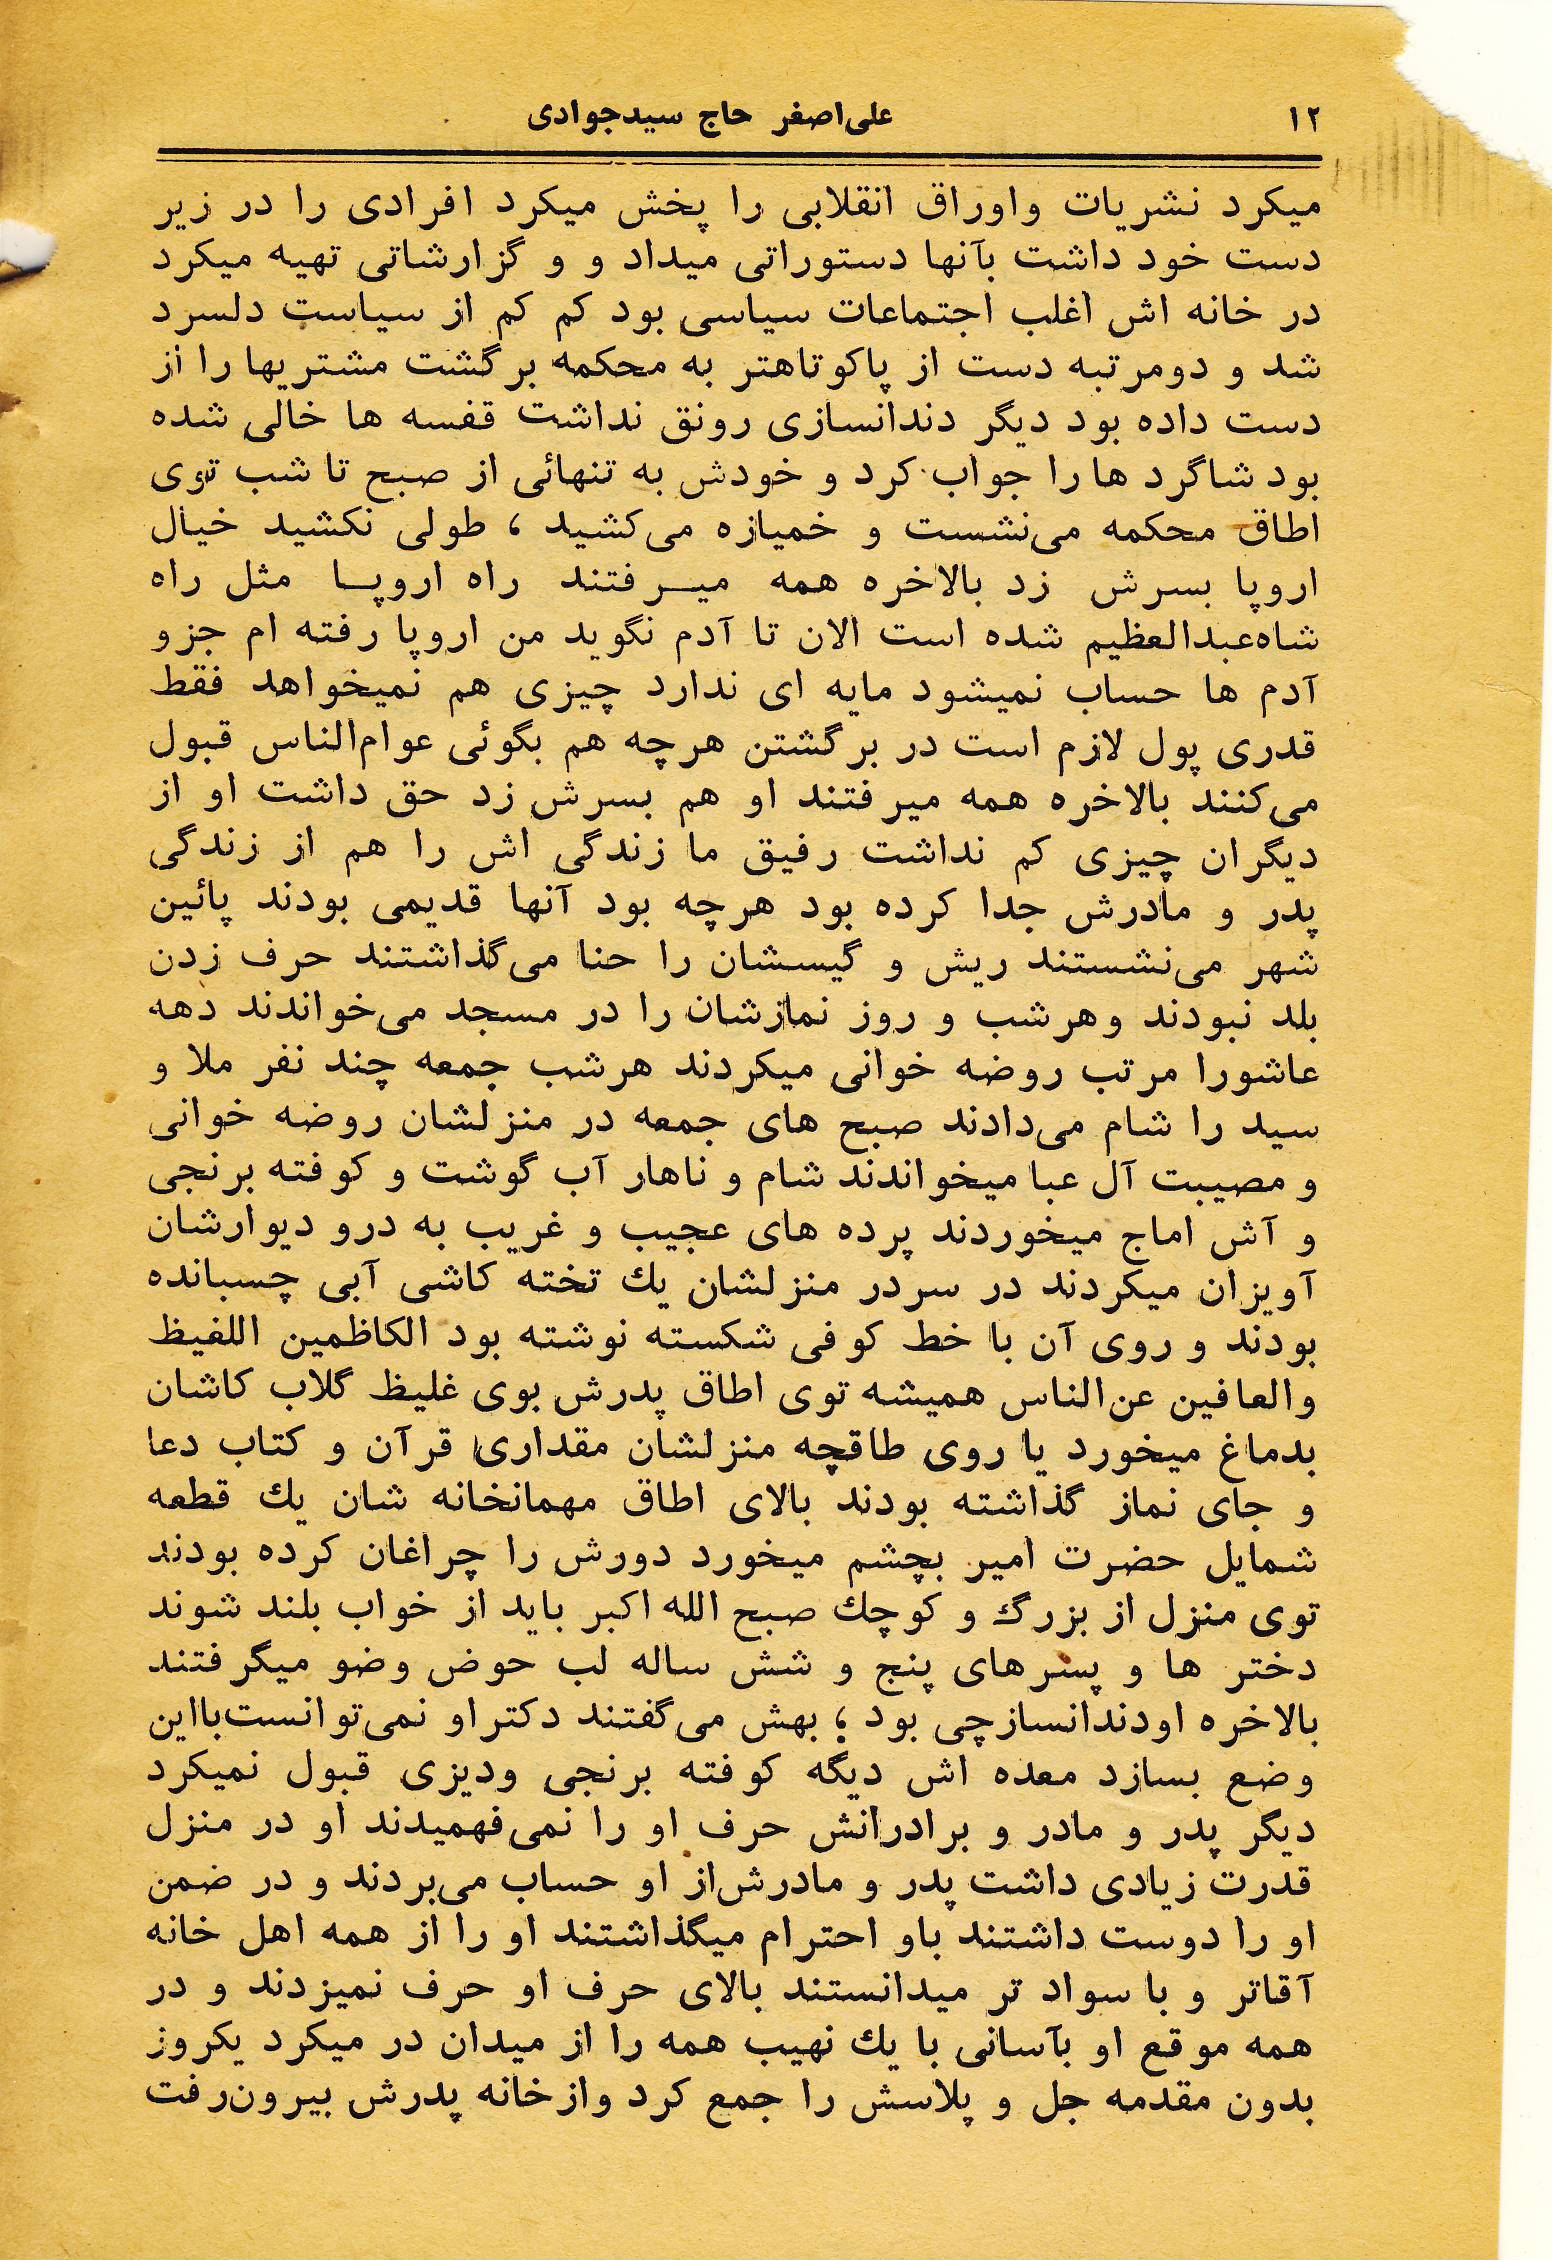 ۱۲
علی‌اصغر حاج سیدجوادی
میکرد نشریات واوراق انقلابی را پخش میکرد افرادی را در زیر
دست خود داشت بآنها دستوراتی میداد و و گزارشاتی تهیه میکرد
در خانه اش اغلب اجتماعات سیاسی بود کم کم از سیاست دلسرد
شد و دومرتبه دست از پاکوتاهتر به محکمه برگشت مشتریها را از
دست داده بود دیگر دندانسازی رونق نداشت قفسه ها خالی شده
بود شاگرد ها را جواب کرد و خودش به تنهائی از صبح تا شب توی
اطاق محکمه می‌نشست و خمیازه می‌کشید ، طولی نکشید خیال
اروپا بسرش زد بالاخره همه میـرفتند راه اروپـا مثل راه
شاه‌عبدالعظیم شده است الان تا آدم نگوید من اروپا رفته ام جزو
آدم ها حساب نمیشود مایه ای ندارد چیزی هم نمیخواهد فقط
قدری پول لازم است در برگشتن هرچه هم بگوئی عوام‌الناس قبول
می‌کنند بالاخره همه میرفتند او هم بسرش زد حق داشت او از
دیگران چیزی کم نداشت رفیق ما زندگی اش را هم از زندگی
پدر و مادرش جدا کرده بود هرچه بود آنها قدیمی بودند پائین
شهر می‌نشستند ریش و گیسشان را حنا می‌گذاشتند حرف زدن
بلد نبودند وهرشب و روز نمازشان را در مسجد می‌خواندند دهه
عاشورا مرتب روضه خوانی میکردند هرشب جمعه چند نفر ملا و
سید را شام می‌دادند صبح های جمعه در منزلشان روضه خوانی
و مصیبت آل عبا میخواندند شام و ناهار آب گوشت و کوفته برنجی
و آش اماج میخوردند پرده های عجیب و غریب به درو دیوارشان
آویزان میکردند در سردر منزلشان یك تخته کاشی آبی چسبانده
بودند و روی آن با خط کوفی شکسته نوشته بود الکاظمین اللفیظ
والعافین عن‌الناس همیشه توی اطاق پدرش بوی غلیظ گلاب کاشان
بدماغ میخورد یا روی طاقچه منزلشان مقداری قرآن و کتاب دعا
و جای نماز گذاشته بودند بالای اطاق مهمانخانه شان یك قطعه
شمایل حضرت امیر بچشم میخورد دورش را چراغان کرده بودند
توی منزل از بزرگ و کوچك صبح الله اکبر باید از خواب بلند شوند
دختر ها و پسرهای پنج و شش ساله لب حوض وضو میگرفتند
بالاخره اودندانسازچی بود ؛ بهش می‌گفتند دکتراو نمی‌توانست‌بااین
وضع بسازد معده اش دیگه کوفته برنجی ودیزی قبول نمیکرد
دیگر پدر و مادر و برادرانش حرف او را نمی‌فهمیدند او در منزل
قدرت زیادی داشت پدر و مادرش‌از او حساب می‌بردند و در ضمن
او را دوست داشتند باو احترام میگذاشتند او را از همه اهل خانه
آقاتر و با سواد تر میدانستند بالای حرف او حرف نمیزدند و در
همه موقع او بآسانی با یك نهیب همه را از میدان در میکرد یکروز
بدون مقدمه جل و پلاسش را جمع کرد وازخانه پدرش بیرون‌رفت